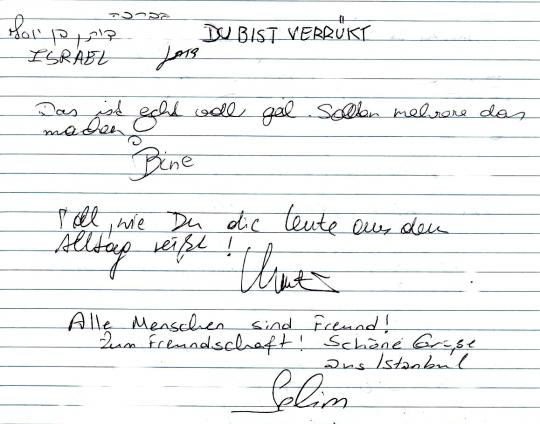 בברכה
DU BIST VERRÜKT
ISRAEL 2019
Das ist echt voll geil. Sollten mehrere das
machen
Bine
Toll, wie Du die Leute aus dem
Alltag reißt!
Alle Menschen sind Freund!
Zum Freundschaft! Schöne Grüße
aus Istanbul
Selim